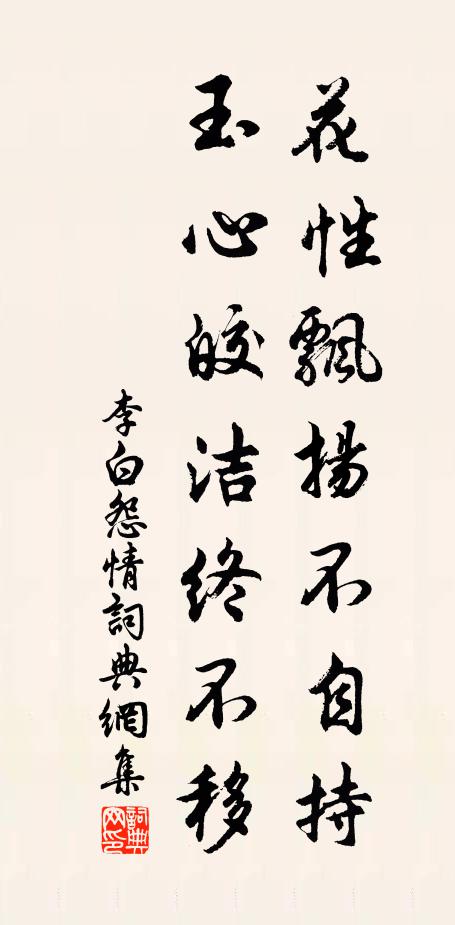 花性飄揚不自持
玉心皎洁終不移
李白怨情詞典網集
詞典网印